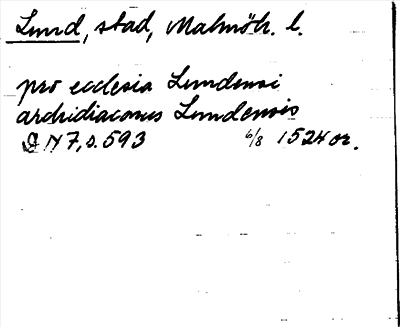 Lund, stad, Malmöh. l.
pro ecclesia Lundensi
archidiaconus Lundensis
D N 7, s. 593 6/8 1524 or.